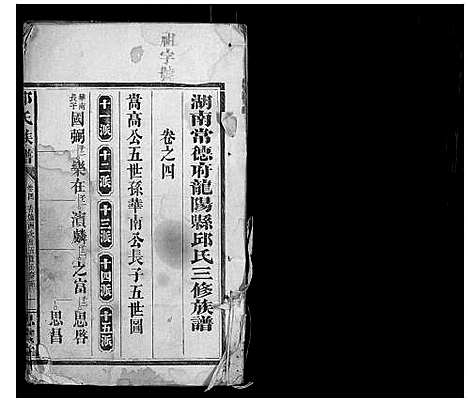 祖字號
湖南常德府龍陽縣邱氏三修族譜
卷之四
嵩高公五世孫華南公長子五世圖
十一派 十二派 十三派 十四派 十五派
華南長子 國弼 樂在 濱麟 之富 思啓
思昌
邱氏族譜